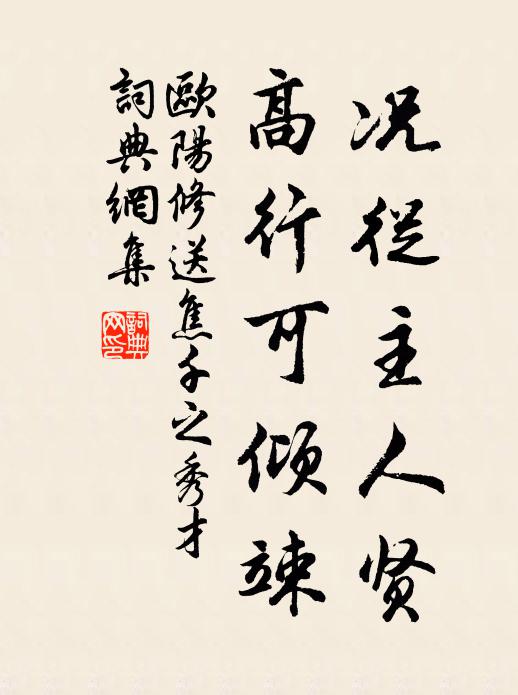 况從主人贤
高行可倾竦
歐陽修送焦千之秀才
詞典網集
詞典网印